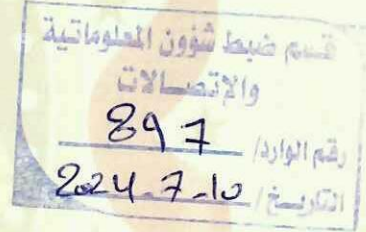 قسم ضبط شؤون المعلوماتية
والإتصالات
رقم الوارد/ 897
التاريخ/ 2024-7-10